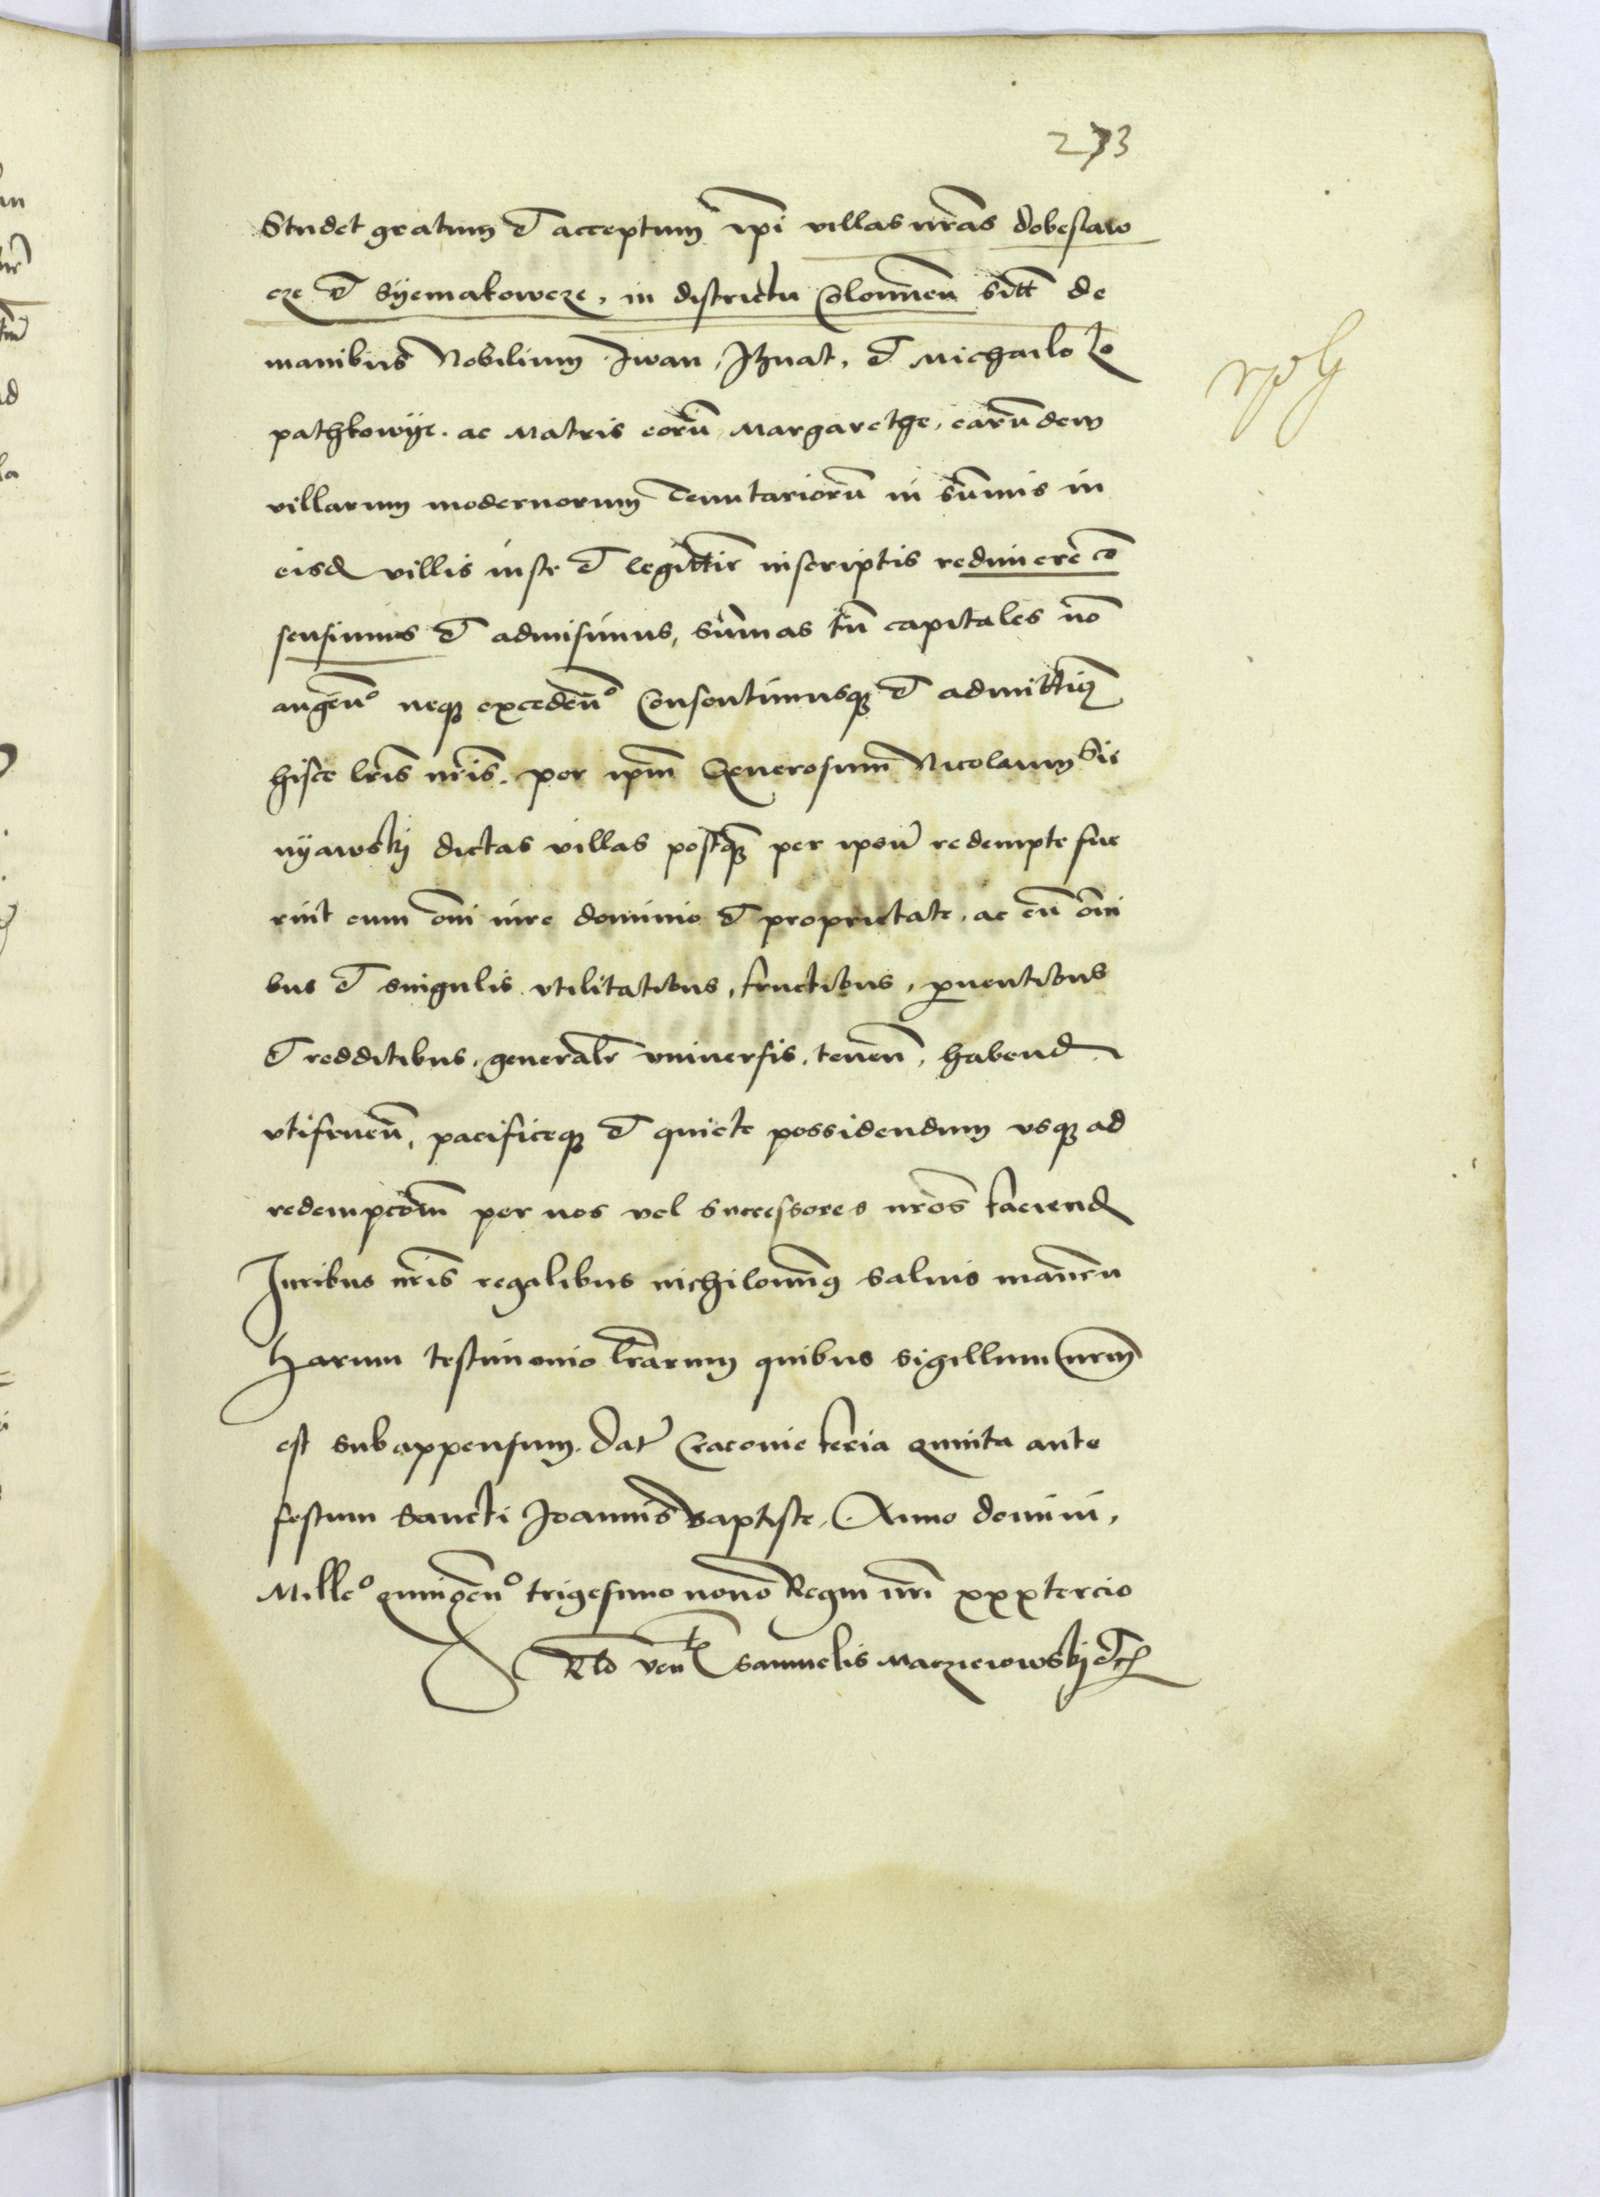 233
Studet gratum et acceptum ip̄i villas nr̄as dobeslaw
cze et Syemakowcze, in districtu Colomien̄ sitt̄ de
manibus Nobilium Iwan, Ihnat, et Michailo Lo
pathkowye. ac Matris eorū Margarethe, earūdem
villarum modernorum Tenutariorū in sūmis in
eisd villis iuste et legittīe inscriptis redimere cō
sensimus et admisimus, sūmas tn̄ capitales nō
augen̄º neqꝫ exceden̄º Consentimusqꝫ et admittimꝰ
hisce lr̄is nr̄is. per ip̄m Generosum Nicolaum Sie
nyawskj dictas villas postqꝫ per ipsū redempte fue
rint cum om̄i iure dominio et proprietate, ac cū om̄i
bus et singulis vtilitatibus, fructibus, ꝓuentibus
et redditibus, generalr̄ vniuersis, tenen̄, habend
vtifruen̄, pacificeqꝫ et quiete possidendum vsqꝫ ad
redempcōm̄ per nos vel successores nr̄os faciend
Iuribus nr̄is regalibus nichilomin̄ꝰ saluis manen̄
Harum testimonio lr̄arum quibus sigillum nrm̄
est subappensum. Dat̄ Cracouie feria quinta ante
festum Sancti Ioannis Baptiste, Anno domini,
Milleº quingen̄º trigesimo nono Regni nr̄i xxxtercio
Rlo ven Samuelis Maczieiowskj etc